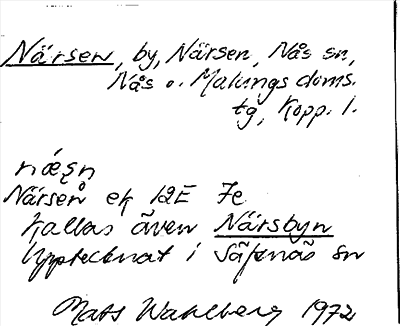 Närsen, by, Närsen, Nås sn,
Nås o. Malungs doms.
tg, Kopp. l.
næṣn
Närsen ek 12E 7e
Kallas även Närsbyn
Upptecknat i Säfsnäs sn
Mats Wahlberg 1972